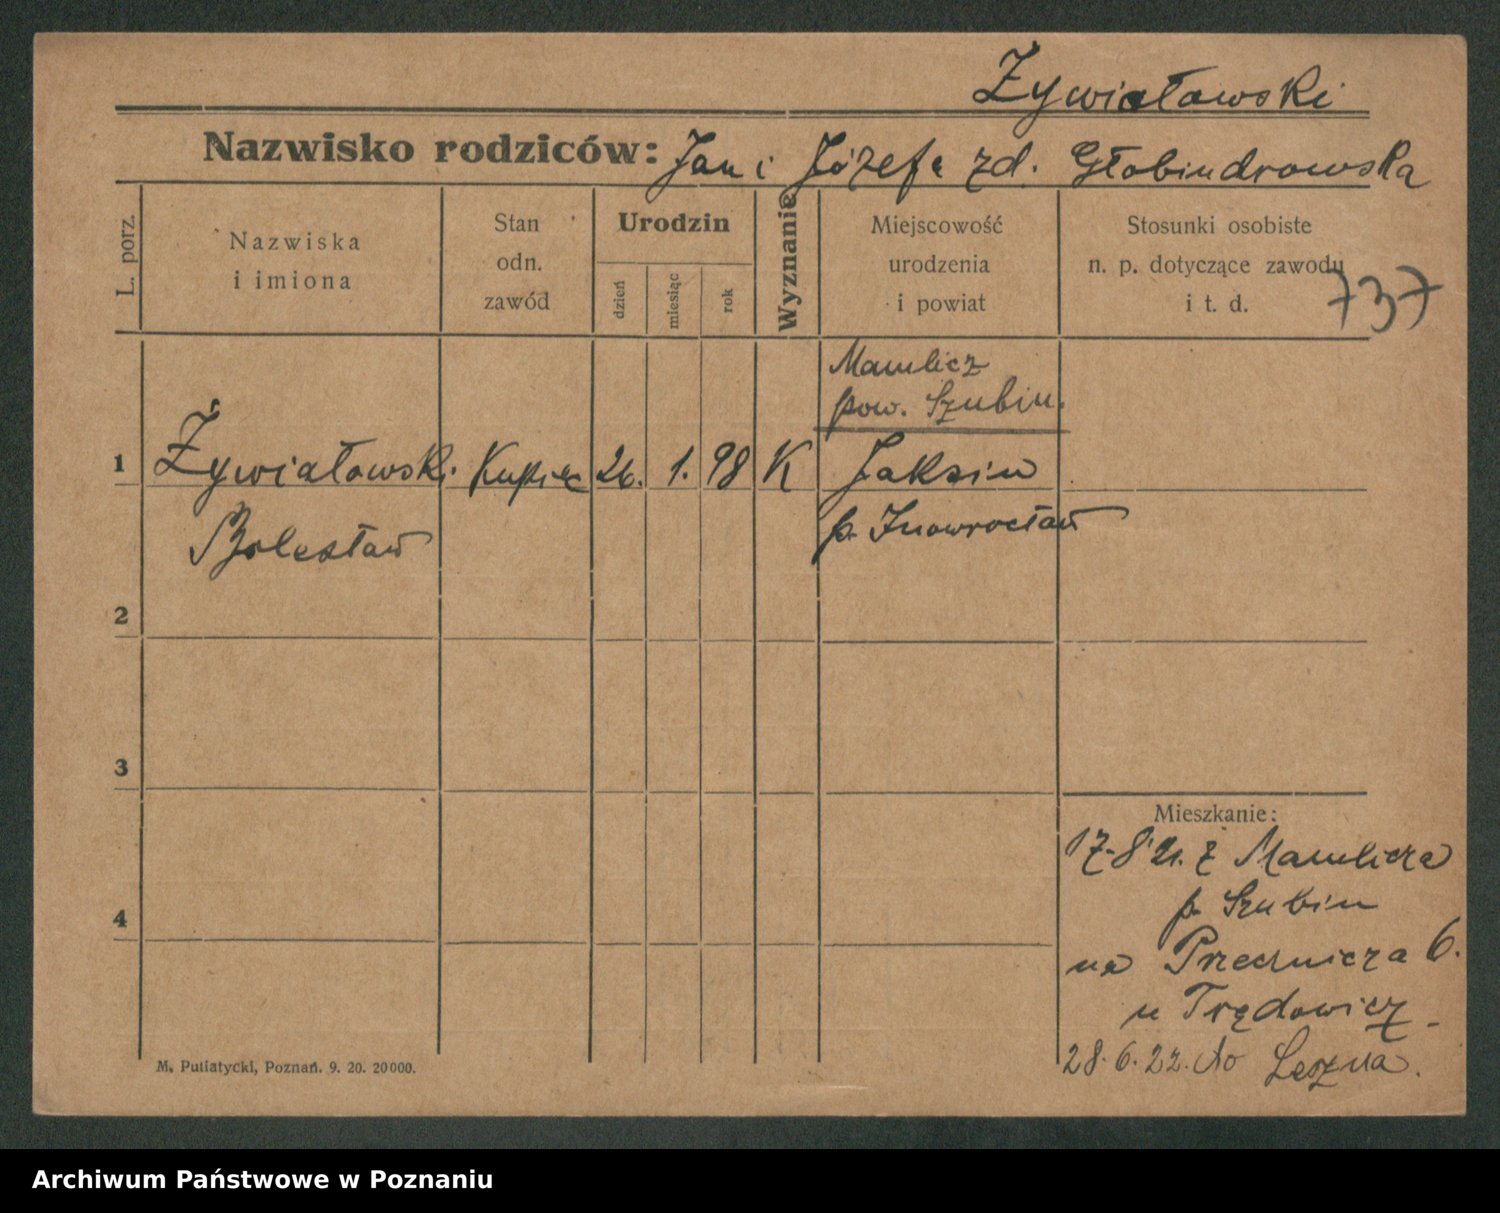 Żywiałowski
Nazwisko rodziców: Jan i Józefa zd. Głobindrowska
L. porz.
Nazwiska
i imiona
Stan
odn.
zawód
Urodzin
dzień
miesiąc
rok
Wyznanie
Miejscowość
urodzenia
i powiat
Stosunki osobiste
n. p. dotyczące zawodu
i t. d.
737
Mamlicz
pow. Szubin.
1 Żywiałowski Kupiec 26. 1. 98 K Jaksin
p. Inowrocław
Bolesław
2
3
4
Mieszkanie:
17-8 21. z Mamlicza
p. Szubin
na Przecznicza 6.
u Trędowicz
28. 6. 22. do Leszna.
M. Putiatycki, Poznań. 9. 20. 20000.
Archiwum Państwowe w Poznaniu